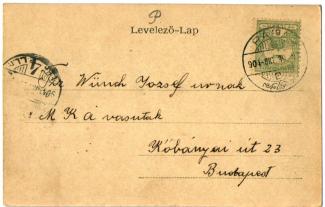 P
Levelező-Lap
Wünch Jozsef urnak
M K Á vasutak
Kőbányai út 23
Budapest